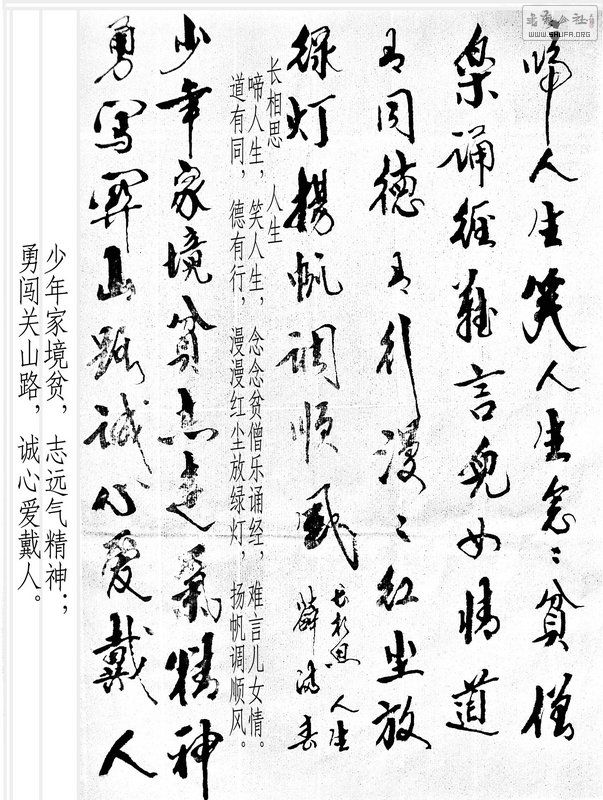 書法公社
WWW.SHUFA.ORG
啼人生笑人生念々貧僧
楽诵經難言兒女情道
有同德有行漫々红尘放
绿灯揚帆调顺風
长相思 人生
薛
长相思 人生
啼人生，笑人生，念念贫僧乐诵经，难言儿女情。
道有同，德有行，漫漫红尘放绿灯，扬帆调顺风。
少年家境貧志远氣精神
勇闯關山路诚心爱戴人
少年家境贫，志远气精神；
勇闯关山路，诚心爱戴人。